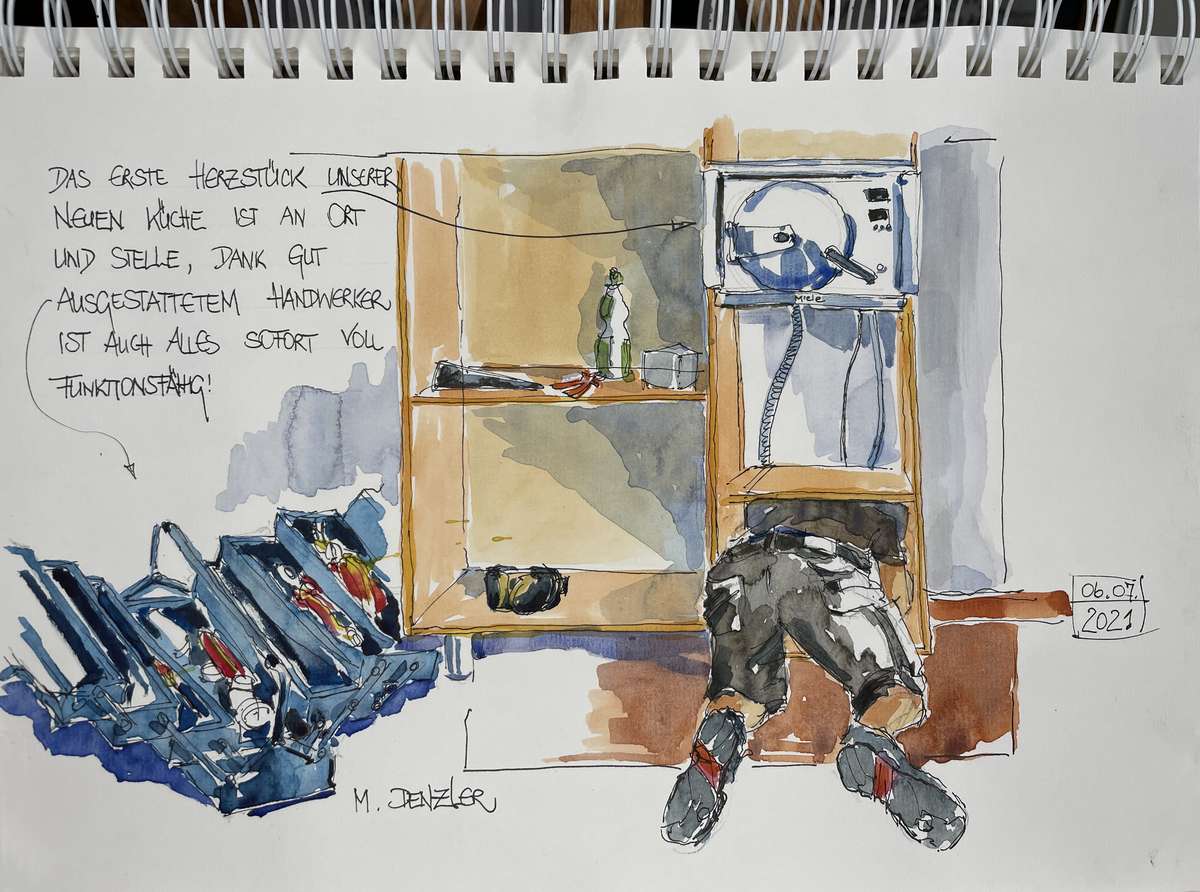 DAS ERSTE HERZSTÜCK UNSERER
NEUEN KÜCHE IST AN ORT
UND STELLE, DANK GUT
AUSGESTATTETEM HANDWERKER
IST AUCH ALLES SOFORT VOLL
FUNKTIONSFÄHIG!
Miele
06.07.
2021
M. DENZLER